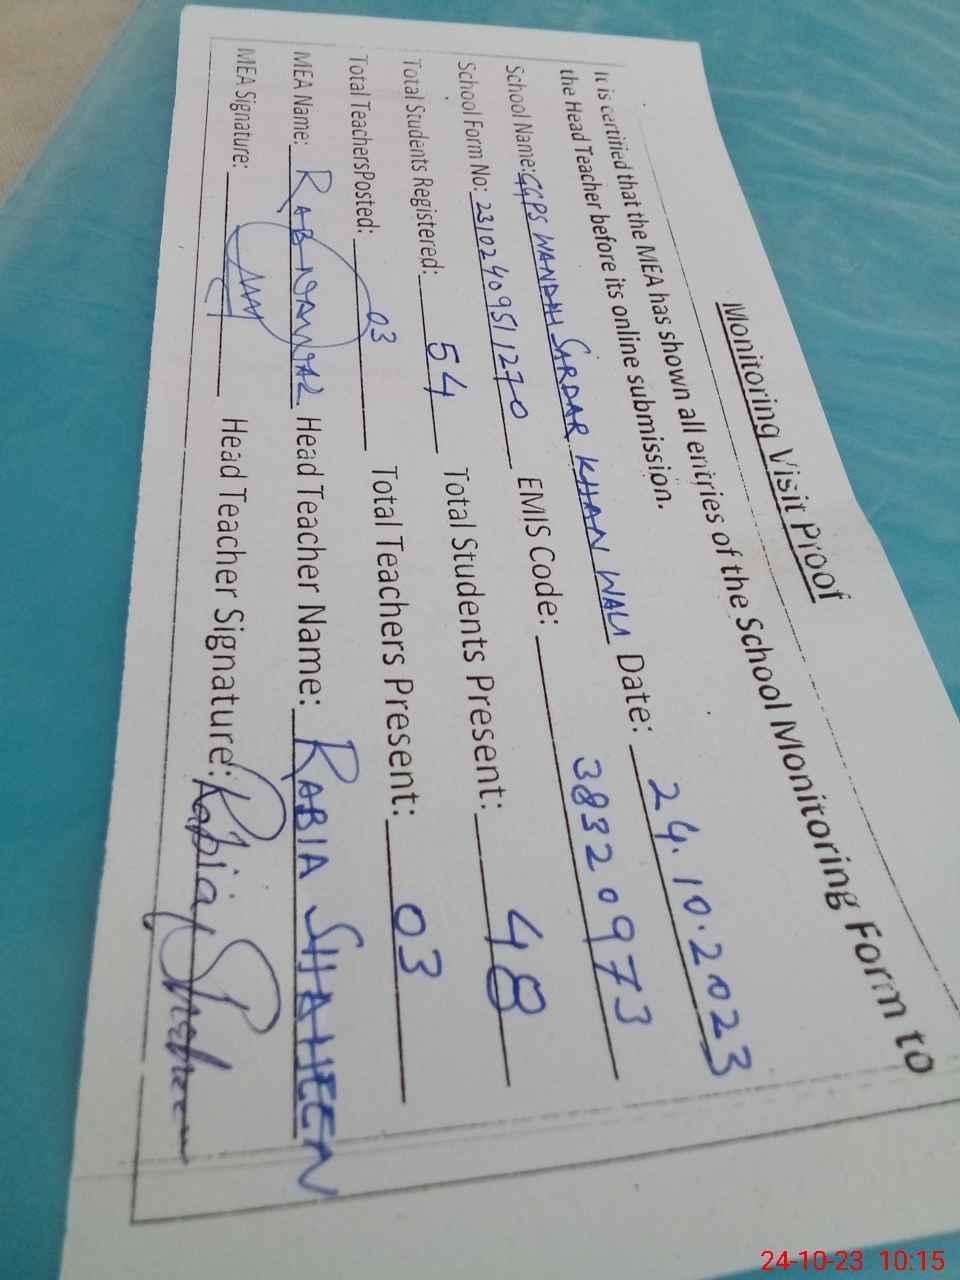 Monitoring Visit Proof
It is certified that the MEA has shown all entries of the School Monitoring Form to
the Head Teacher before its online submission.
School Name: GGPS WANDAH SARDAR KHAN WALI Date: 24.10.2023
School Form No: 23102409511270 EMIS Code: 38320973
Total Students Registered: 54 Total Students Present: 48
Total TeachersPosted: 03 Total Teachers Present: 03
MEA Name: Head Teacher Name: RABIA SHAHEEN
MEA Signature: Head Teacher Signature: Rabia Shaheen
24-10-23 10:15